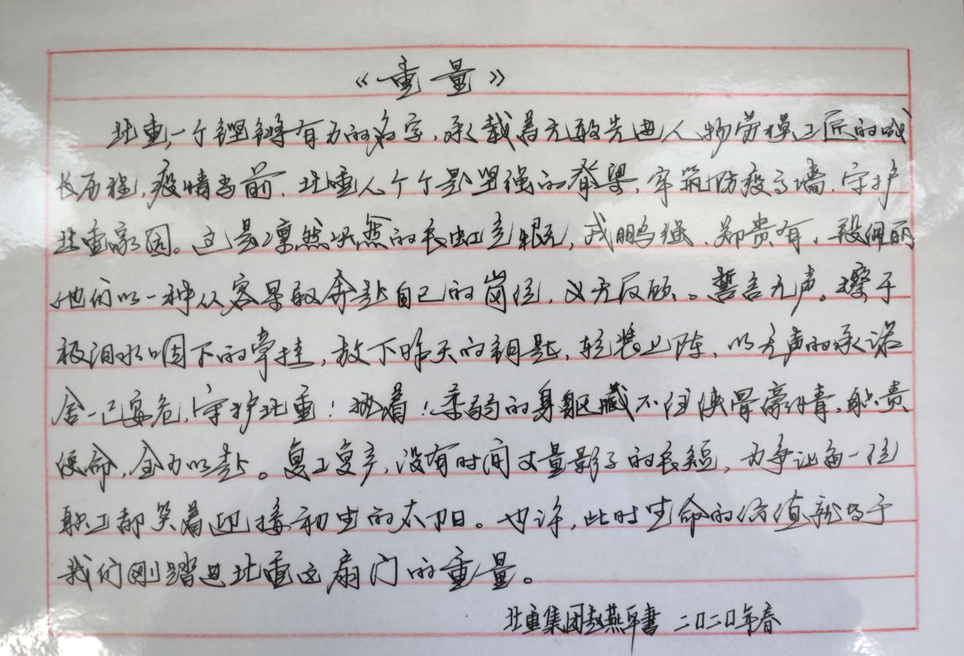 《重量》
北重,一个铿锵有力的名字,承载着无数先进人物劳模工匠的成
长历程,疫情当前,北重人个个是坚强的脊梁,牢筑防疫高墙,守护
北重家园。这是凛然决然的长虹亮眼,戎鹏强、郑贵有、段
他们以一种从容果敢奔赴自己的岗位,义无反顾。誓言无声。擦干
被泪水咽下的牵挂,放下昨天的钥匙,轻装上阵,以无声的承诺
舍一己安危,守护北重!听着!柔弱的身躯藏不住侠骨豪情,职责
使命,全力以赴。复工复产,没有时间丈量影子的长短,力争让每一位
职工都笑着迎接初生的太阳。也许,此时生命的价值就等于
我们刚踏进北重这扇门的重量。
北重集团赵燕平书 二〇二〇年春